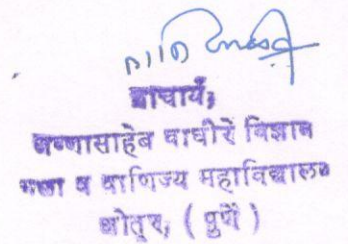 प्राचार्य,
अण्णासाहेब वाघीरे विज्ञान
कला व वाणिज्य महाविद्यालय
ओतूर, ( पुणे )